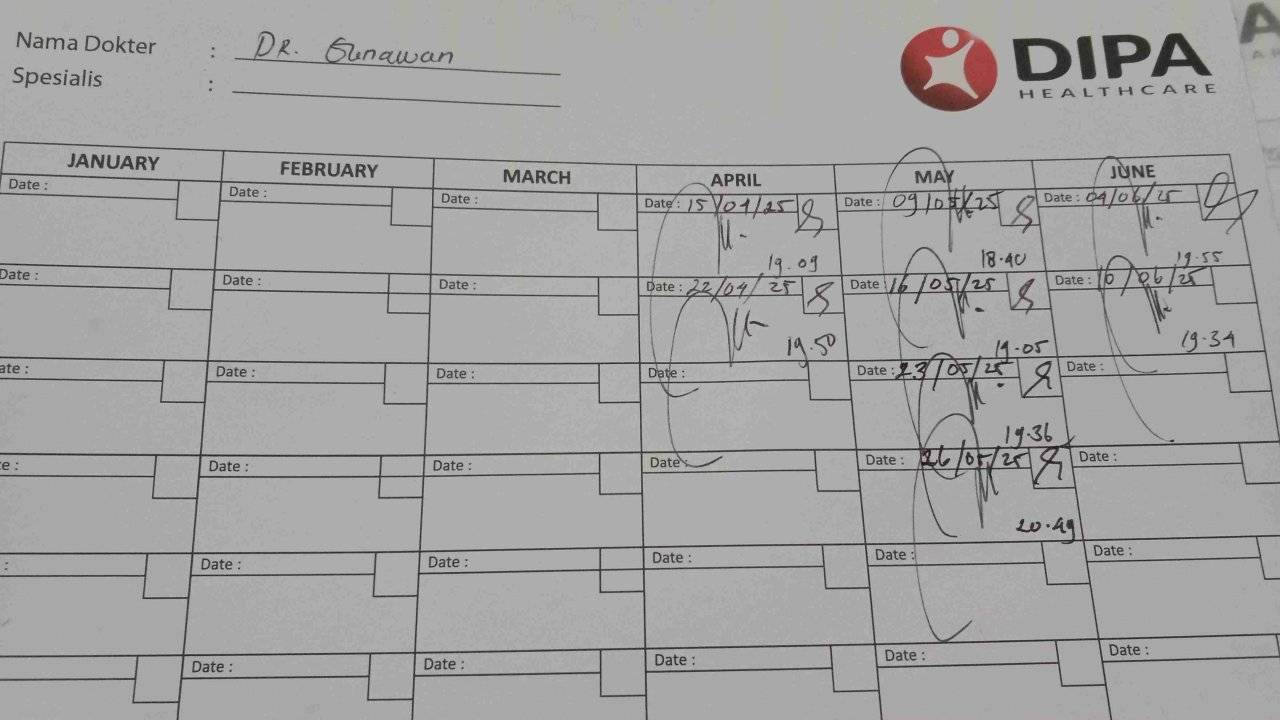 Nama Dokter : DR. Gunawan
Spesialis :
DIPA
HEALTHCARE
JANUARY FEBRUARY MARCH APRIL MAY JUNE
Date : Date : Date : Date : 15/04/25 Date : 09/05/25 Date : 04/06/25
19.09 18.40 19.55
Date : Date : Date : Date : 22/04/25 Date : 16/05/25 Date : 10/06/25
19.50 19.05 19.34
ate : Date : Date : Date : Date : 23/05/25 Date :
19.36
e : Date : Date : Date : Date : 26/05/25 Date :
20.49
: Date : Date : Date : Date : Date :
Date : Date : Date : Date : Date :